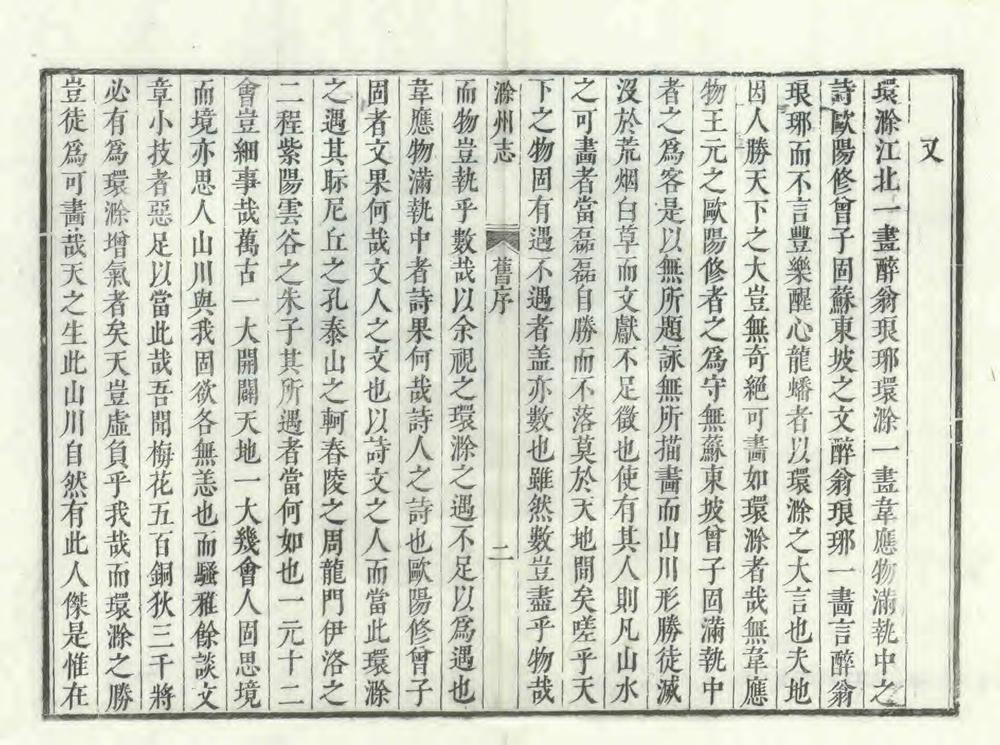 又
環滁江北一畫醉翁琅琊環滁一畫韋應物滿執中之
詩歐陽修曾子固蘇東坡之文醉翁琅琊一畫言醉翁
琅琊而不言豐樂醒心龍蟠者以環滁之大言也夫地
因人勝天下之大豈無奇絕可畫如環滁者哉無韋應
物王元之歐陽修者之為守無蘇東坡曾子固滿執中
者之為客是以無所題詠無所描畫而山川形勝徒滅
沒於荒烟白草而文獻不足徵也使有其人則凡山水
之可畫者當磊磊自勝而不落莫於天地間矣嗟乎天
下之物固有遇不遇者盖亦數也雖然數豈盡乎物哉
滁州志 舊序 二
而物豈執乎數哉以余視之環滁之遇不足以為遇也
韋應物滿執中者詩果何哉詩人之詩也歐陽修曾子
固者文果何哉文人之文也以詩文之人而當此環滁
之遇其眎尼丘之孔泰山之軻春陵之周龍門伊洛之
二程紫陽雲谷之朱子其所遇者當何如也一元十二
會豈細事哉萬古一大開闢天地一大幾會人固思境
而境亦思人山川與我固欲各無恙也而騷雅餘談文
章小技者惡足以當此哉吾聞梅花五百銅狄三千將
必有為環滁增氣者矣天豈虛負乎我哉而環滁之勝
豈徒為可畫哉天之生此山川自然有此人傑是惟在